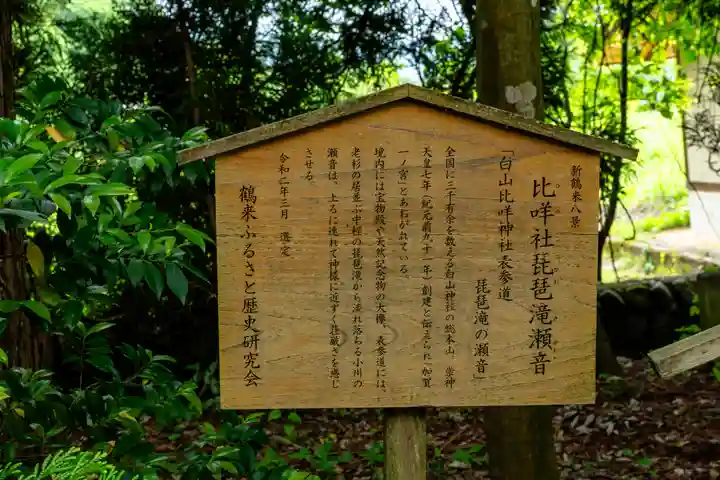 新鶴来八景
比咩社琵琶滝瀬音
「白山比咩神社表参道
琵琶滝の瀬音」
全国に三千有余を数える白山神社の総本山、崇神
天皇七年（紀元前九十一年）創建と伝えられ「加賀
一ノ宮」とあおがれている。
境内には宝物殿や天然記念物の大欅、表参道には、
老杉の居並ぶ中程の琵琶滝から流れ落ちる小川の
瀬音は、上るに連れて神様に近ずく荘厳さを感じ
させる。
令和二年三月　選定
鶴来ふるさと歴史研究会